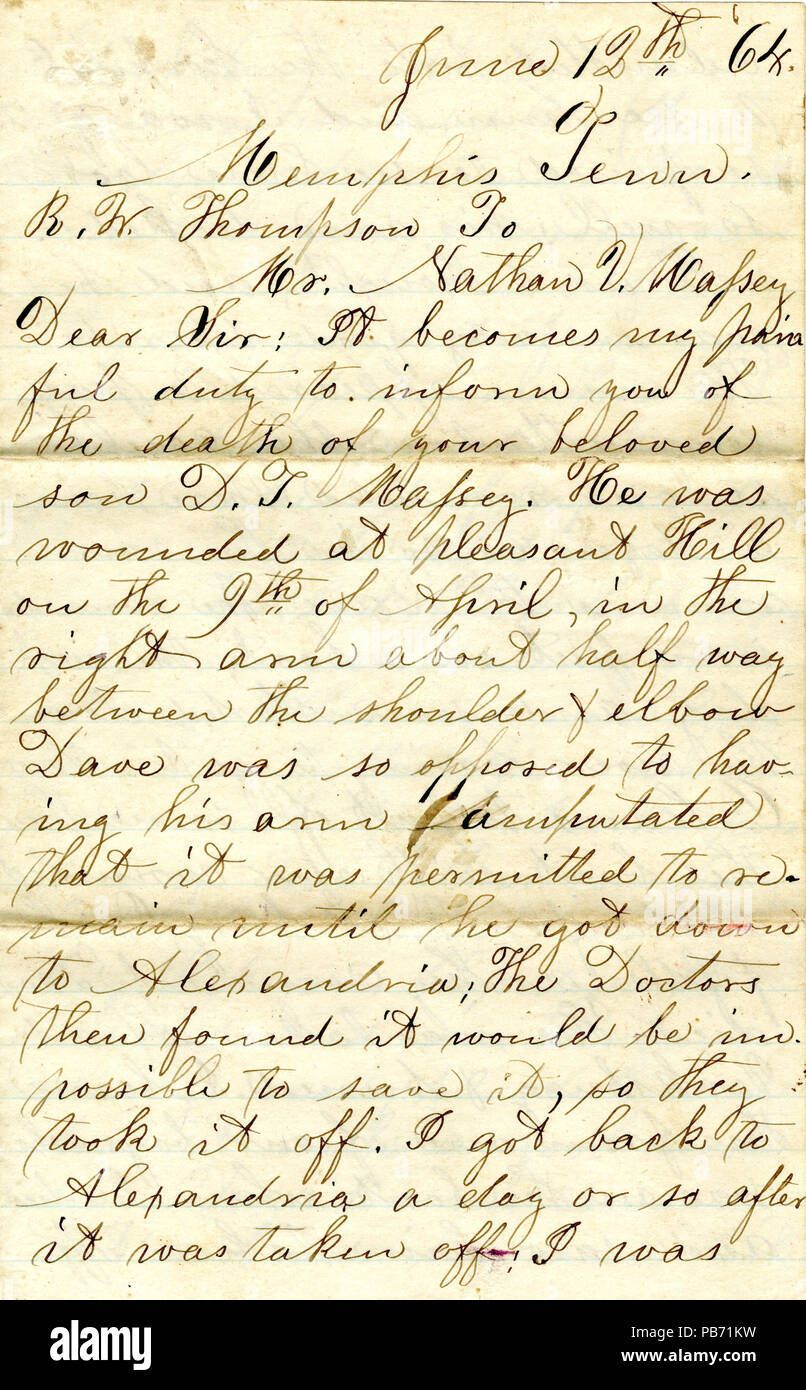 June 12th 64.
Memphis Tenn.
R. W. Thompson To
Mr. Nathan V. Maſsey
Dear Sir; It becomes my pain
ful duty to inform you of
the death of your beloved
son D. T. Maſsey. He was
wounded at pleasant Hill
on the 9th of April, in the
right arm about half way
between the shoulder & elbow
Dave was so opposed to hav-
ing his arm amputated
that it was permitted to re-
main until he got down
to Alexandria; The Doctors
then found it would be im-
possible to save it, so they
took it off. I got back to
Alexandria a day or so after
it was taken off; I was
alamy
Image ID: PB71KW
www.alamy.com